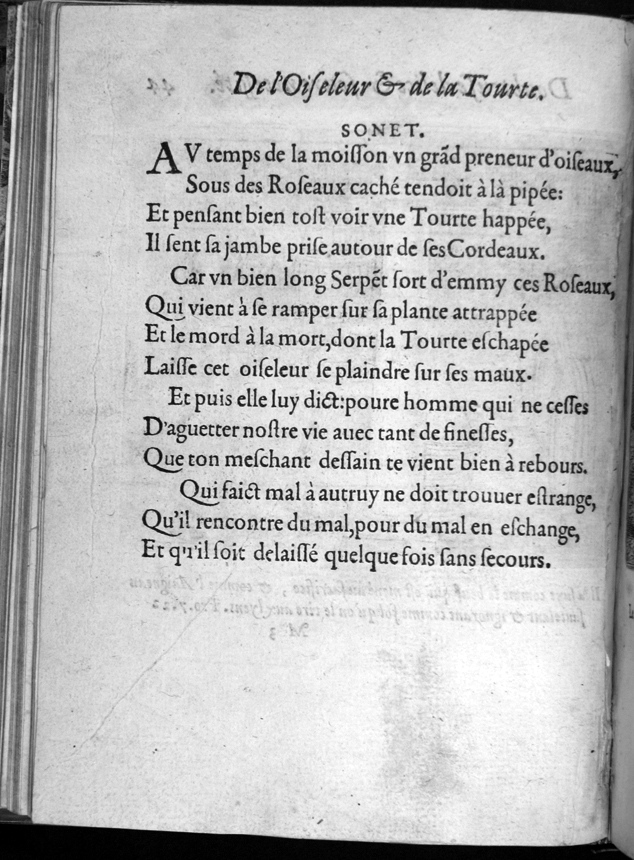 De l'Oiſeleur & de la Tourte.
SONET.
AV temps de la moiſſon vn grãd preneur d'oiſeaux,
Sous des Roſeaux caché tendoit à là pipée:
Et penſant bien toſt voir vne Tourte happée,
Il ſent ſa jambe priſe autour de ſes Cordeaux.
Car vn bien long Serpẽt ſort d'emmy ces Roſeaux,
Qui vient à ſe ramper ſur ſa plante attrappée
Et le mord à la mort, dont la Tourte eſchapée
Laiſſe cet oiſeleur ſe plaindre ſur ſes maux.
Et puis elle luy dict: poure homme qui ne ceſſes
D'aguetter noſtre vie auec tant de fineſſes,
Que ton meſchant deſſain te vient bien à rebours.
Qui faict mal à autruy ne doit trouuer eſtrange,
Qu'il rencontre du mal, pour du mal en eſchange,
Et qu'il ſoit delaiſſé quelque fois ſans ſecours.